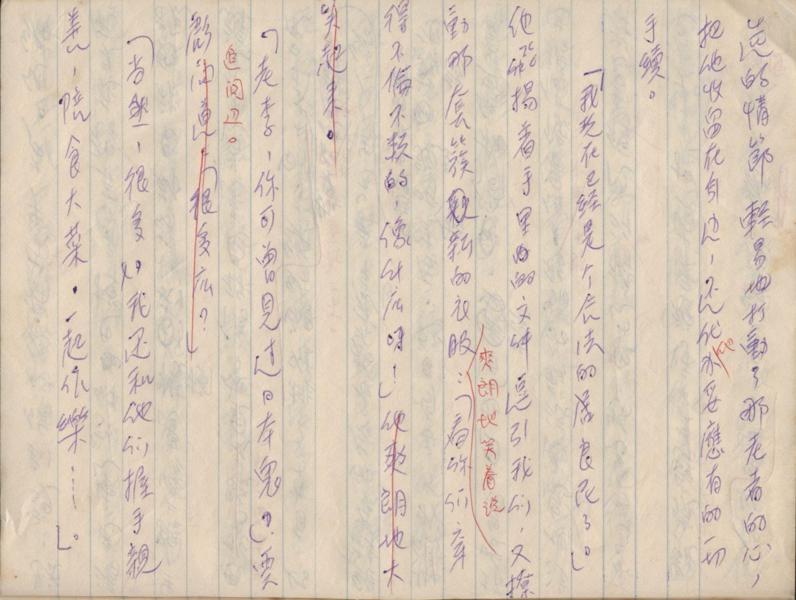 的情節 輕易地打動了那老者的心，
把他收留在身邊，還代他办妥應有的一切
手續。
「我現在已經是个合法的居良民了。」
他飛揚着手里面的文件 引我们，又撩
動那套簇新的衣服：「看你们穿
爽朗地笑着說
得不倫不類的，像什么呀！」他爽朗地大
笑起來。
「老李，你可曾見过日本鬼？」賈
追问过。
「很多么？」
「当然，很多，我还和他们握手親
善，陪食大菜，一起作樂……」。